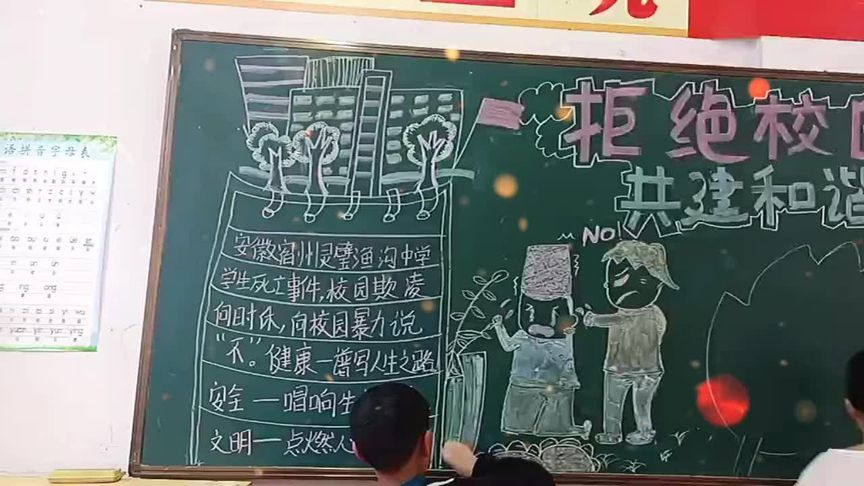 语拼音字母表
拒绝校
共建和谐
NO!
安徽宿州灵璧渔沟中学
学生死亡事件,校园欺凌
何时休,向校园暴力说
“不”。健康一谱写人生之路
安全一唱响生
文明一点燃人